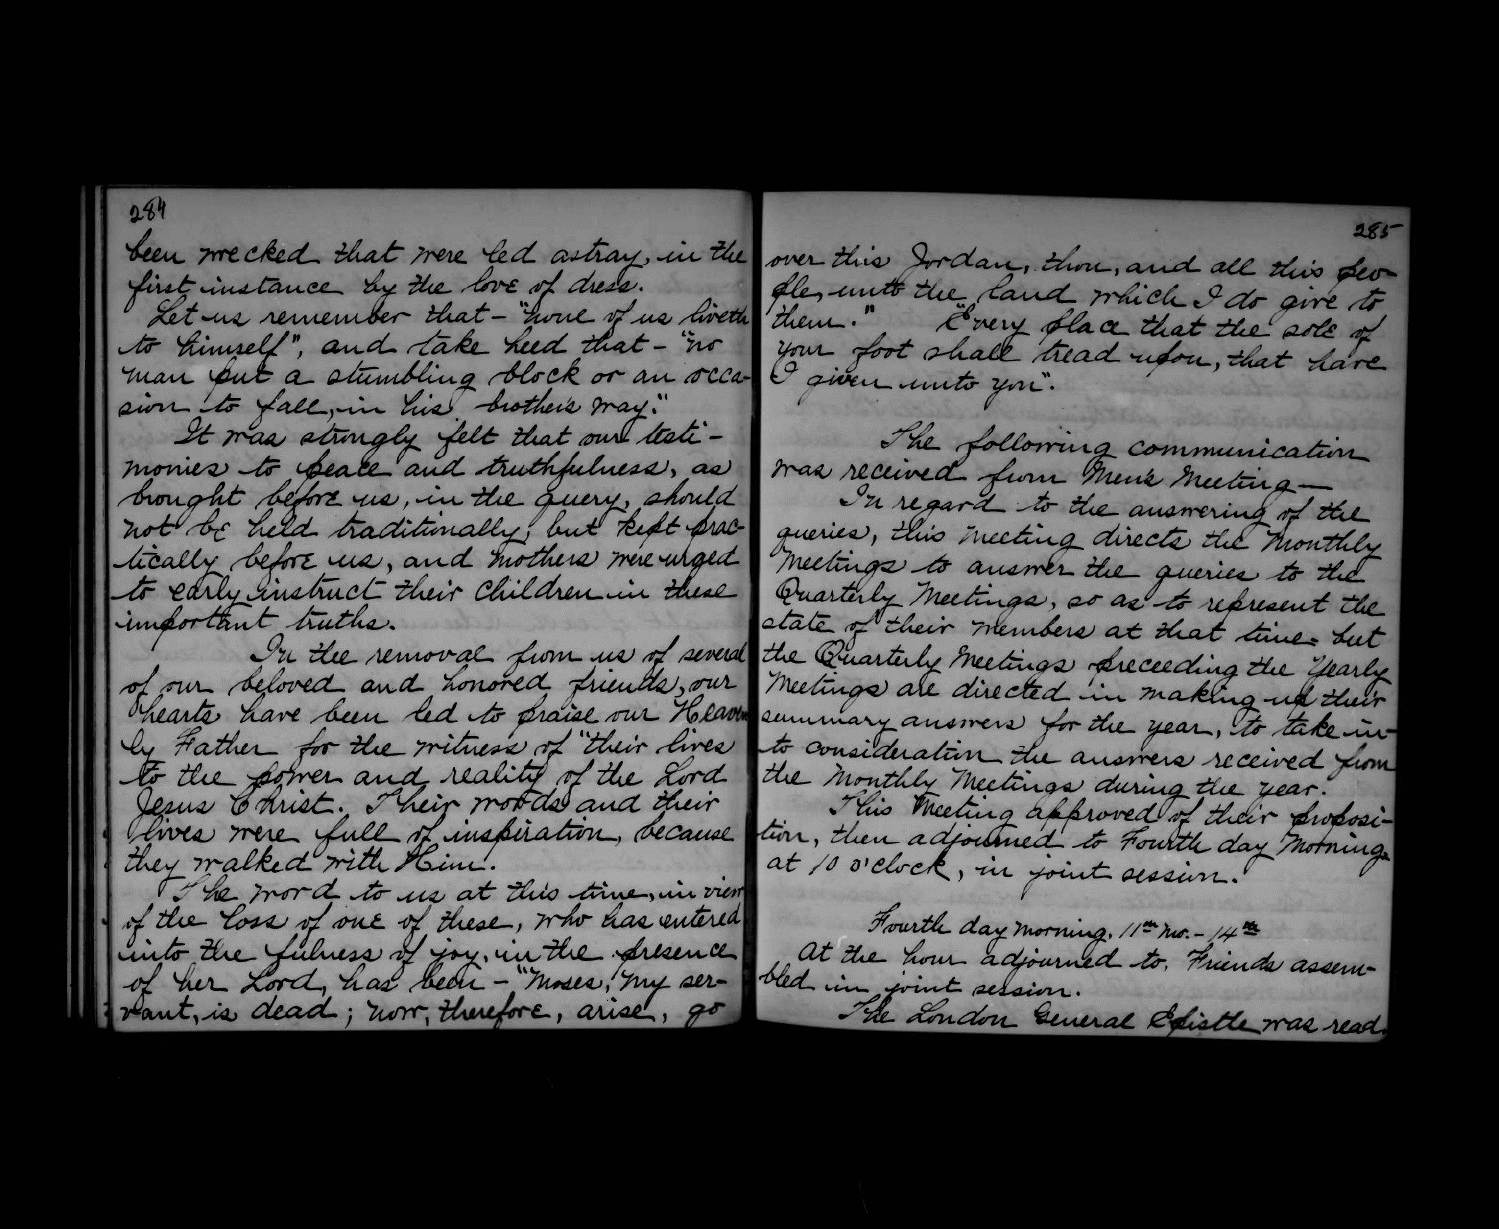 284
been wrecked that were led astray, in the
first instance by the love of dress.
Let us remember that - "none of us liveth
to himself", and take heed that - "no
man put a stumbling block or an occa-
sion to fall, in his brother's way."
It was strongly felt that our testi-
monies to peace and truthfulness, as
brought before us, in the query, should
not be held traditionally, but kept prac-
tically before us, and mothers were urged
to early instruct their children in these
important truths.
In the removal from us of several
of our beloved and honored friends, our
hearts have been led to praise our Heaven
ly Father for the witness of "their lives
to the power and reality of the Lord
Jesus Christ. Their words and their
lives were full of inspiration, because
they walked with Him.
The word to us at this time, in view
of the loss of one of these, who has entered
into the fulness of joy, in the presence
of her Lord, has been - "Moses, my ser-
vant, is dead; now, therefore, arise, go
285
over this Jordan, thou, and all this peo-
ple, unto the land which I do give to
them." "Every place that the sole of
your foot shall tread upon, that have
I given unto you".
The following communication
was received from Men's Meeting—
In regard to the answering of the
queries, this meeting directs the Monthly
Meetings to answer the queries to the
Quarterly Meetings, so as to represent the
state of their members at that time - but
the Quarterly Meetings preceeding the Yearly
Meetings are directed in making up their
summary answers for the year, to take in-
to consideration the answers received from
the Monthly Meetings during the year.
This Meeting approved of their proposi-
tion, then adjourned to Fourth day Morning
at 10 o'clock, in joint session.
Fourth day morning, 11th Mo. - 14th
At the hour adjourned to, Friends assem-
bled in joint session.
The London General Epistle was read.